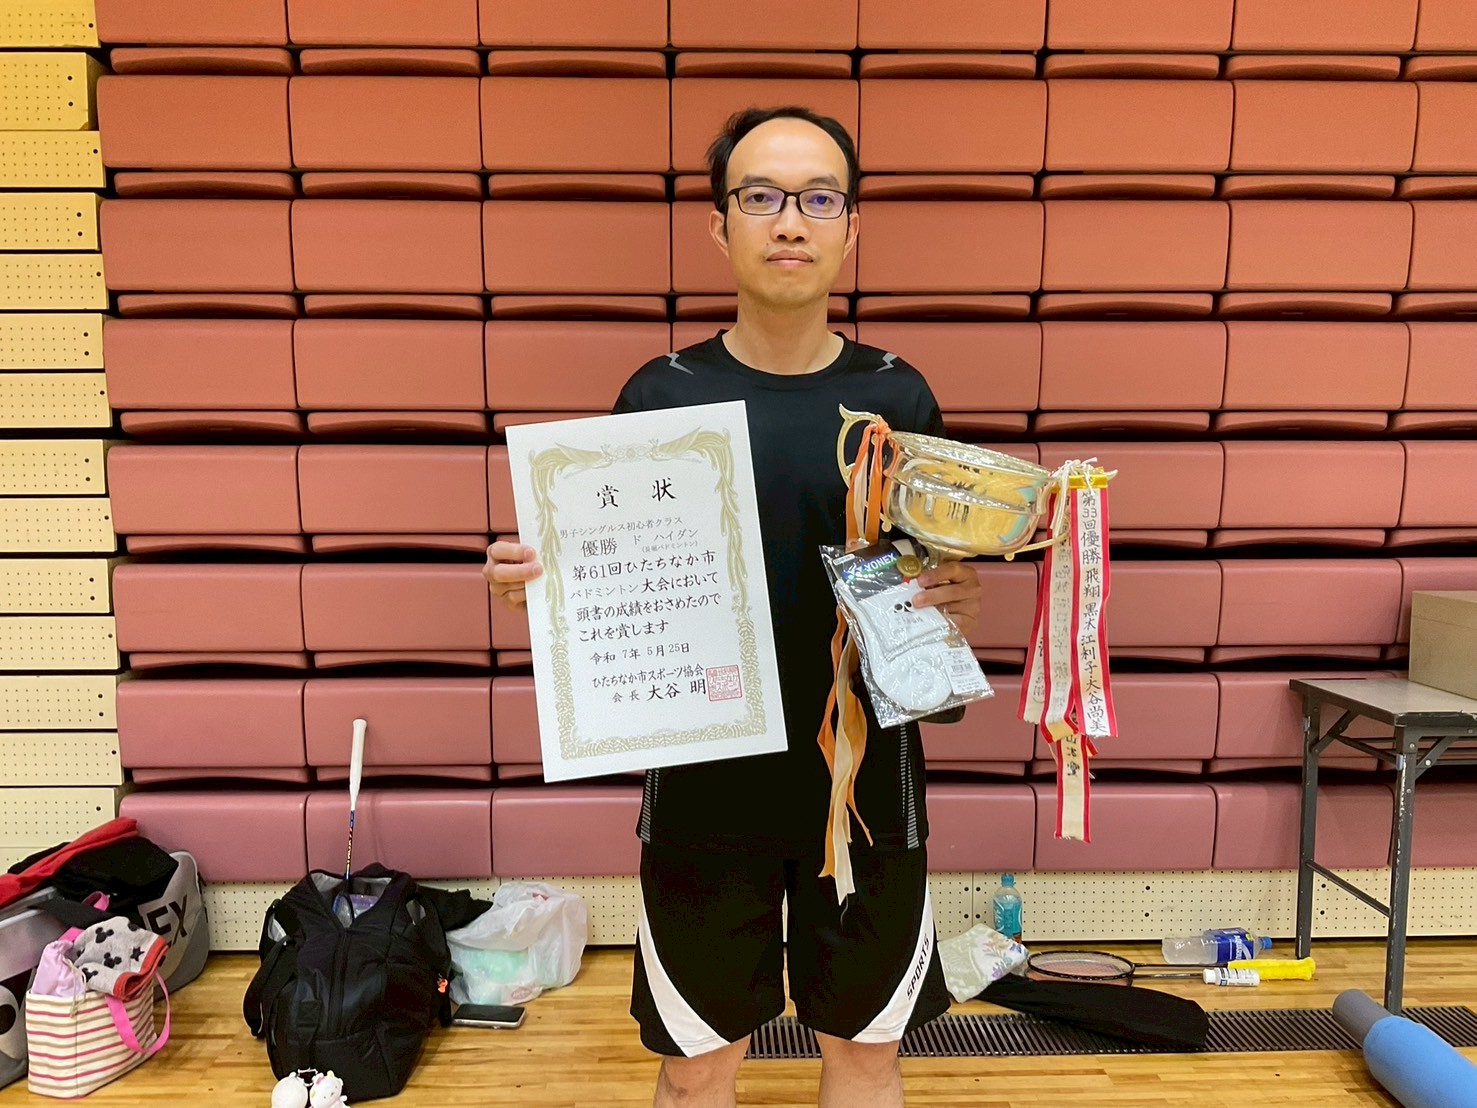 賞状
男子シングルス初心者クラス
優勝 ド ハイダン
(長堀バドミントン)
第61回ひたちなか市
バドミントン大会において
頭書の成績をおさめたので
これを賞します
令和 7年 5月25日
ひたちなか市スポーツ協会
会長 大谷 明
YONEX
第33回優勝 飛翔 黒木 江利子・大谷尚美
SPORTS